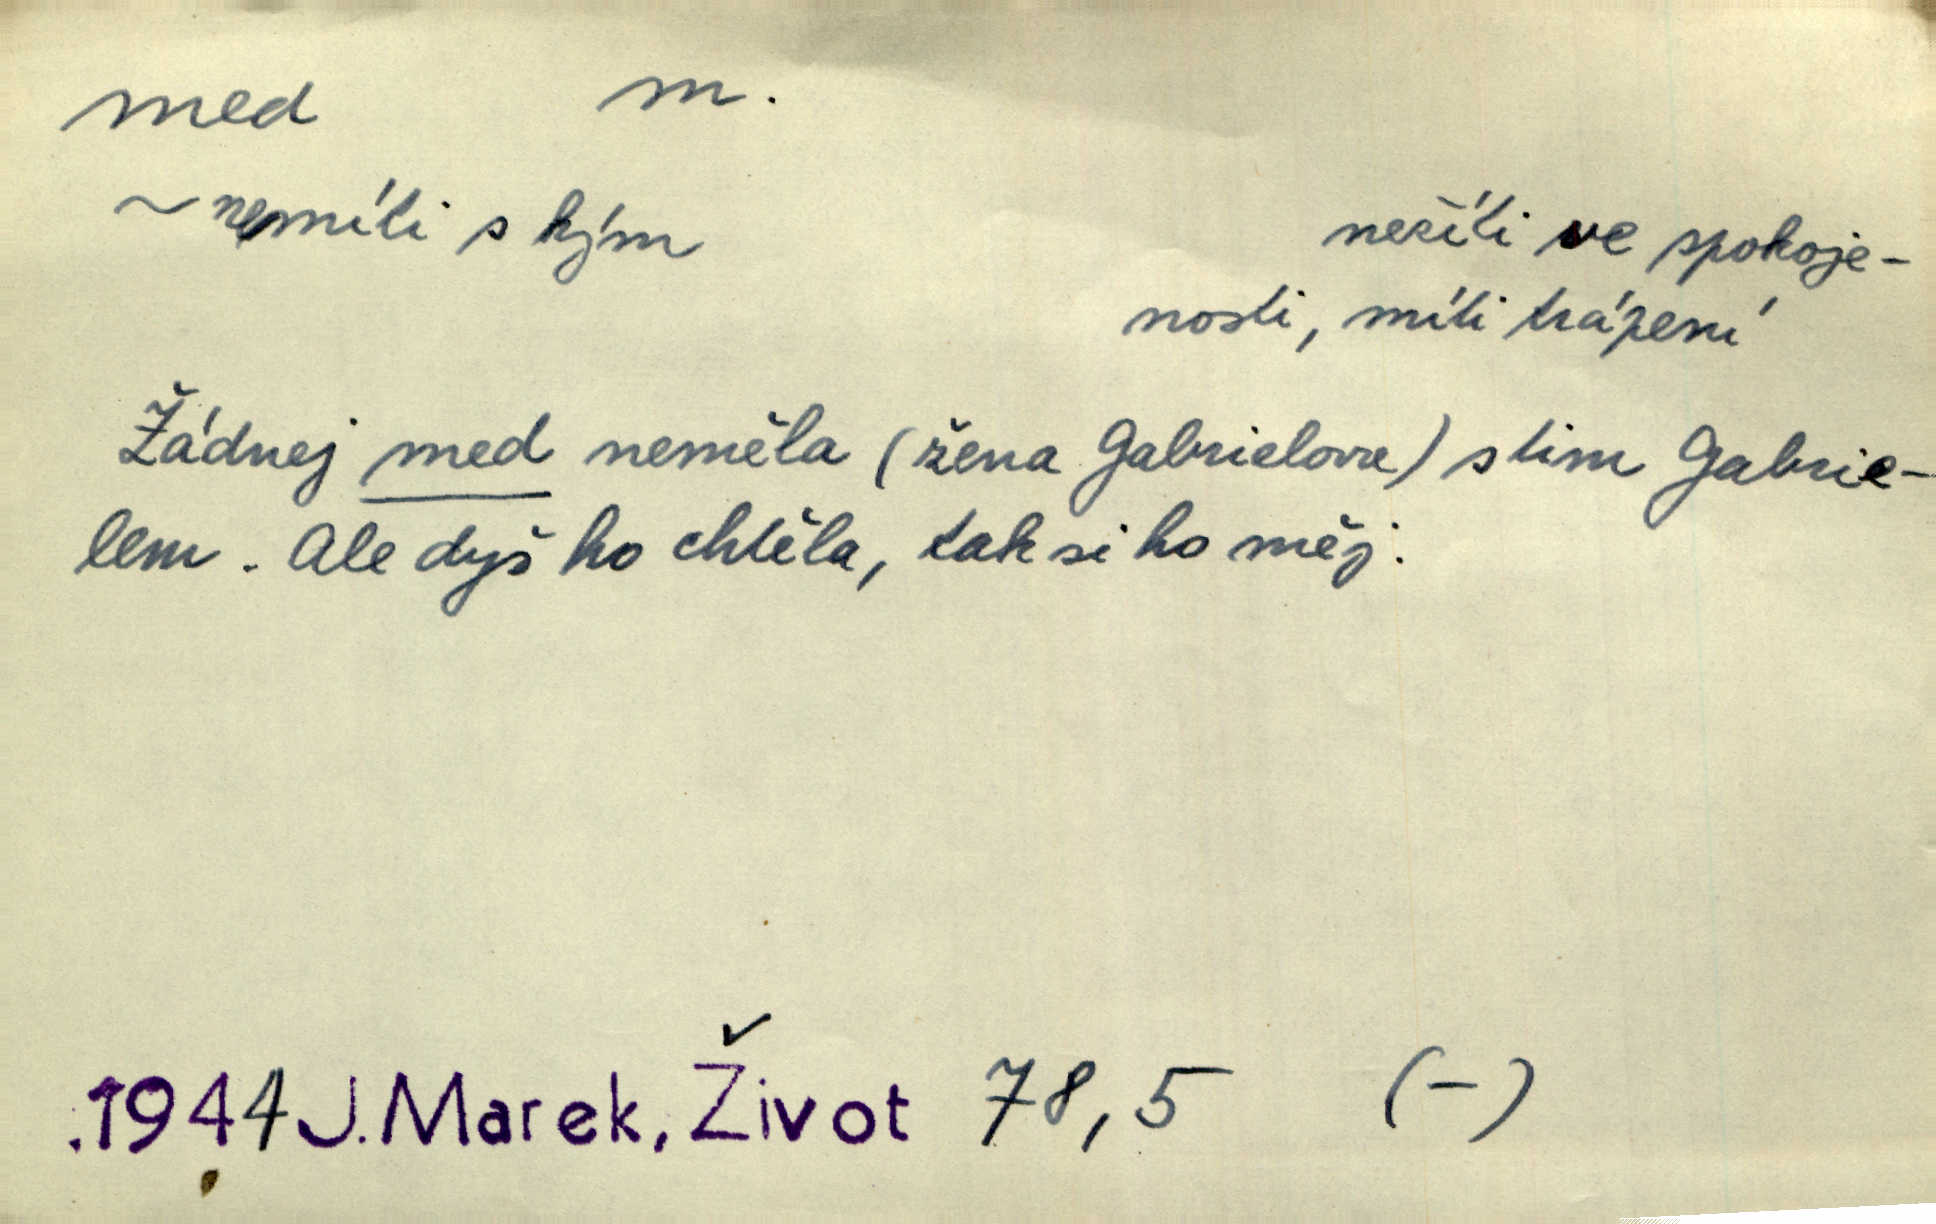 med m.
~ nemíti s kým
nežíti ve spokoje-
nosti, míti trápení
Žádnej med neměla (žena Gabrielova) s tim Gabrie-
lem. Ale dyš ho chtěla, tak si ho měj.
.1944 J. Marek, Život 78,5 (-)